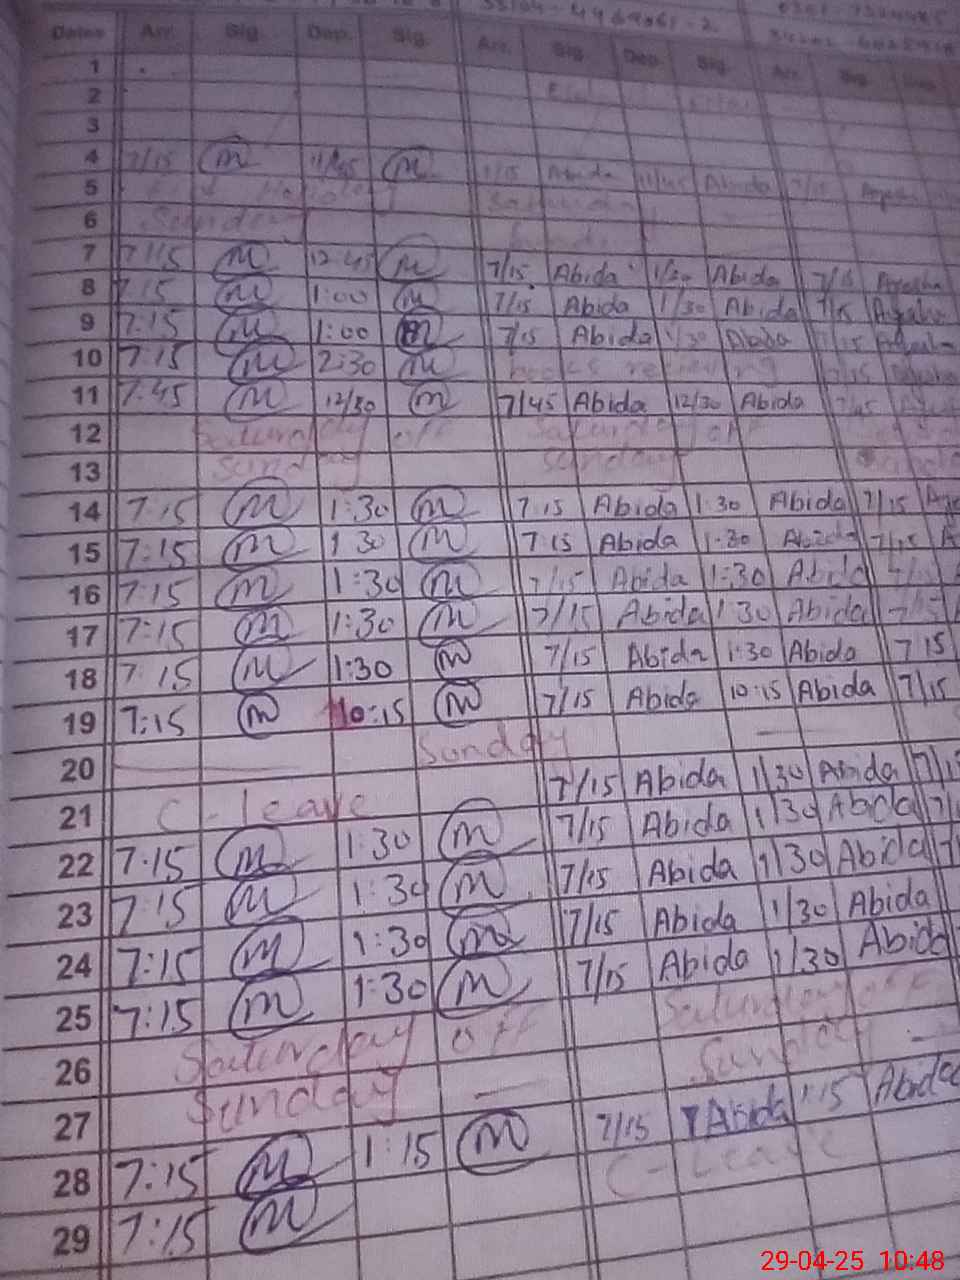 Dates Arr. Sig. Dep. Sig. Arr. Sig. Dep. Sig. Arr. Sig.
1
2
3
4 7/15 m 11/45 m 7/15 Abida 11/45 Abida 7/15
5
6 Sunday
7 7/15 m 12:45 m 7/15 Abida 1/30 Abida 7/15 Ayesha
8 7:15 m 1:00 m 7/15 Abida 1/30 Abida 7/15
9 7:15 m 1:00 m 7/15 Abida 1/30 Abida 7/15
10 7:15 m 2:30 m 7/15
11 7:45 m 12/30 m 7/45 Abida 12/30 Abida 7/45
12 Saturday off Saturday off
13 Sunday Sunday
14 7:15 m 1:30 m 7:15 Abida 1:30 Abida 7/15
15 7:15 m 1:30 m 7:15 Abida 1:30 Abida 7/15
16 7:15 m 1:30 m 7/15 Abida 1:30 Abida
17 7:15 m 1:30 m 7/15 Abida 1:30 Abida
18 7:15 m 1:30 m 7/15 Abida 1:30 Abida 7 15
19 7:15 m 10:15 m 7/15 Abida 10:15 Abida 7/15
20 Sunday
21 C-leave 7/15 Abida 1/30 Abida
22 7:15 m 1:30 m 7/15 Abida 1/30 Abida
23 7:15 m 1:30 m 7/15 Abida 1/30 Abida
24 7:15 m 1:30 m 7/15 Abida 1/30 Abida
25 7:15 m 1:30 m 7/15 Abida 1/30 Abida
26 Saturday off Saturday off
27 Sunday — Sunday —
28 7:15 m 1:15 m 7/15 Abida 1:15 Abida
29 7:15 m C-Leave
29-04-25 10:48